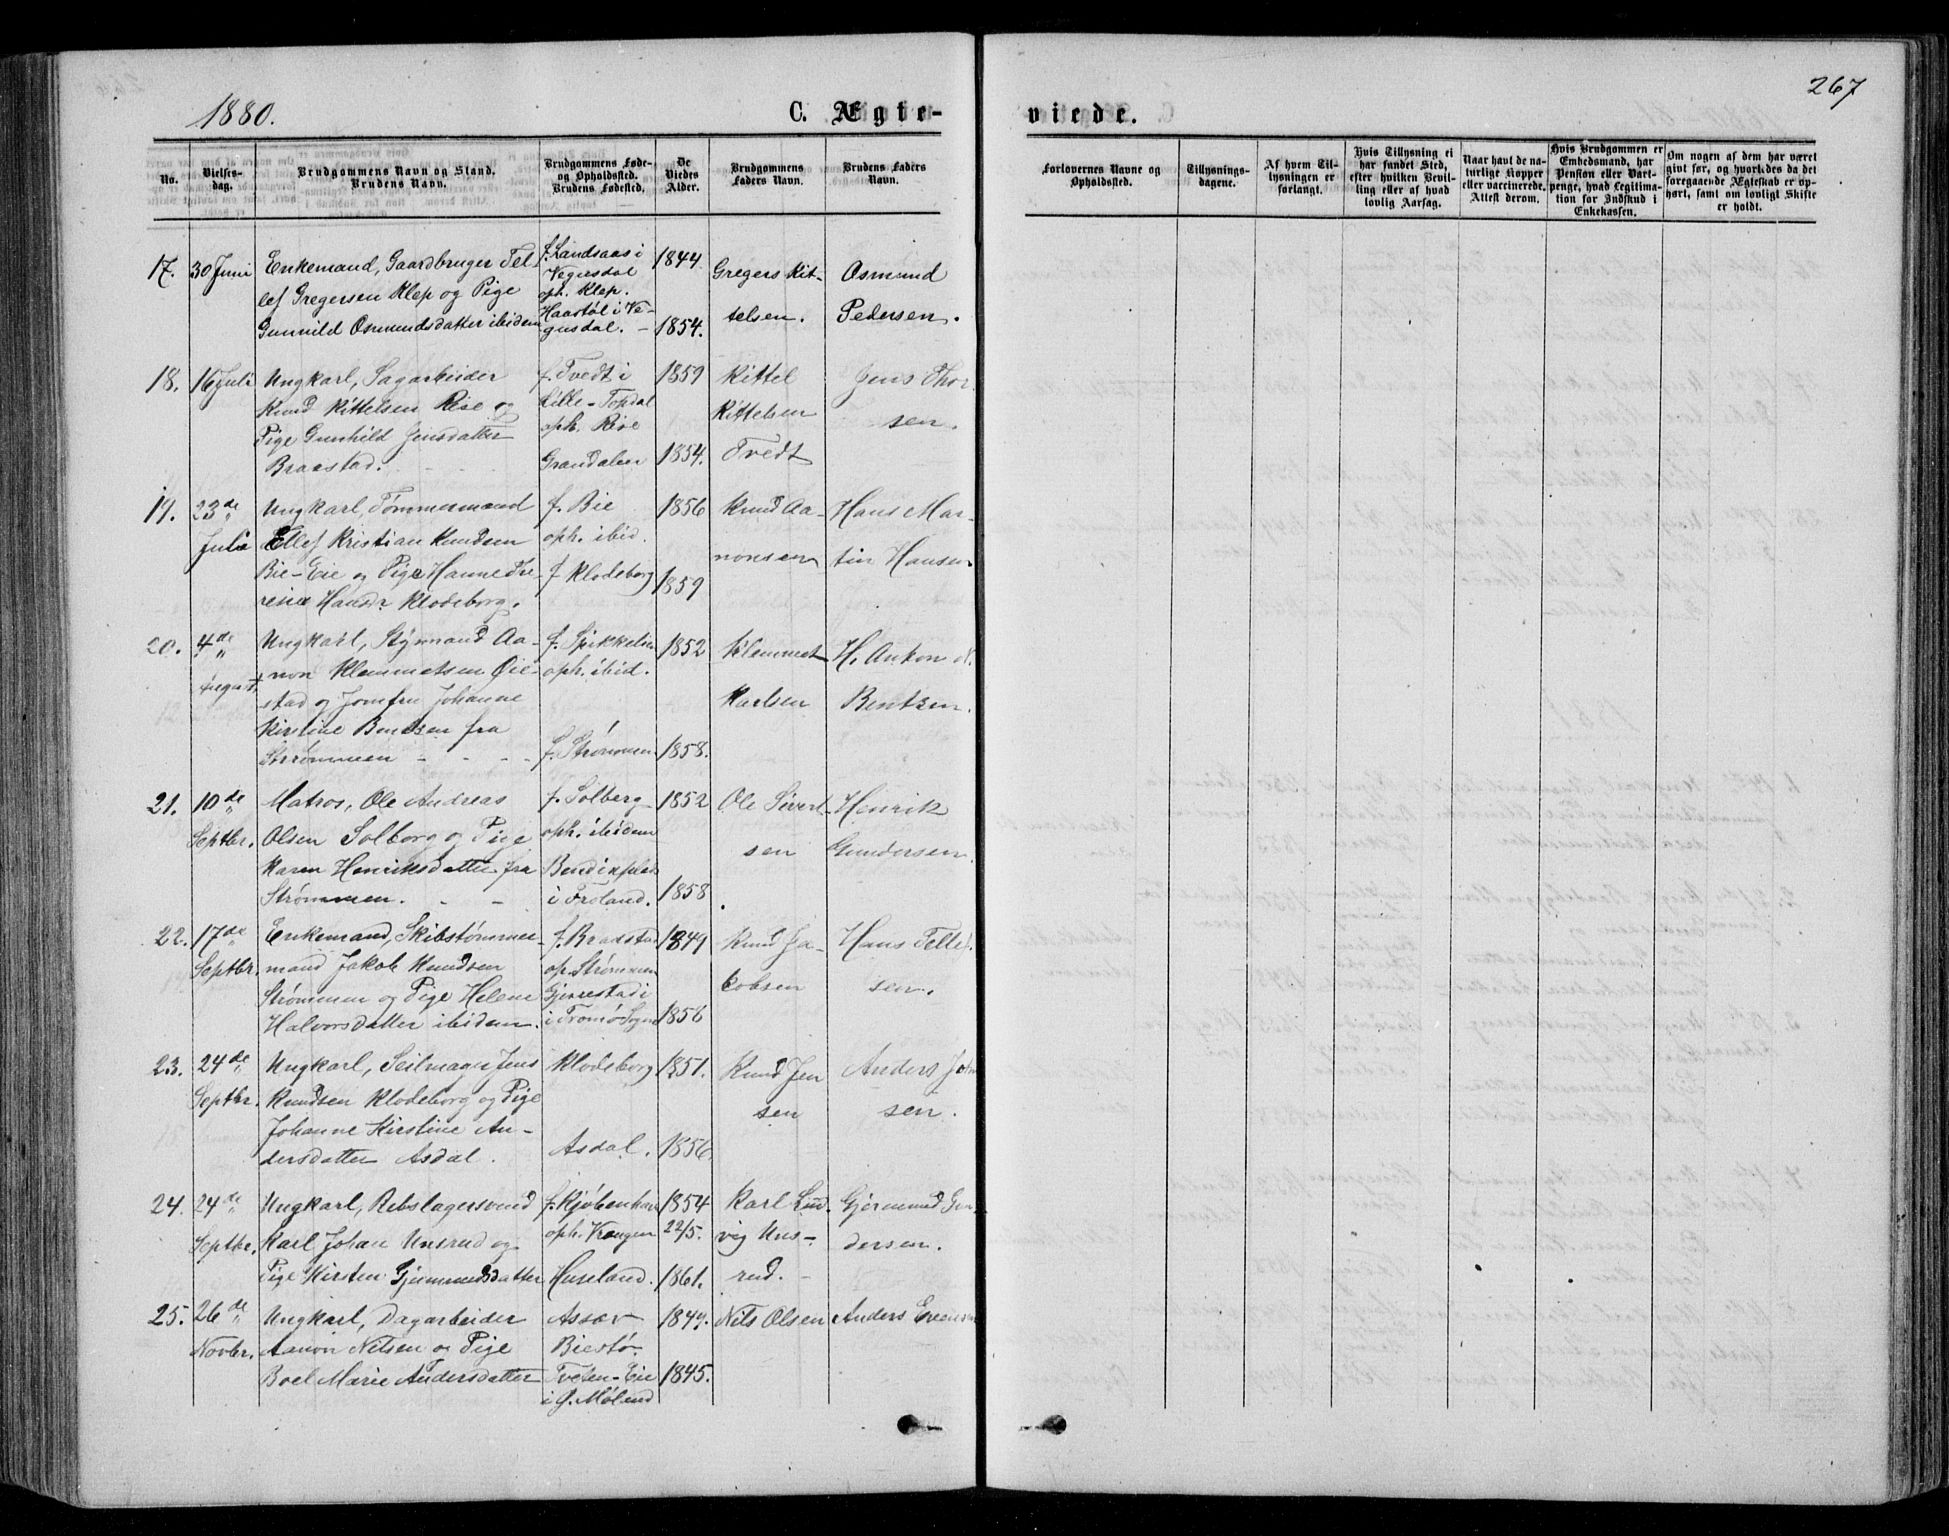 267
1880.
C. Ægte-
viede.
No.
Vielses-
dag.
Brudgommens Navn og Stand.
Brudens Navn.
Brudgommens Føde-
og Opholdssted.
Brudens Fødested.
De
Viedes
Alder.
Brudgommens
Faders Navn.
Brudens Faders
Navn.
Forlovernes Navne og
Opholdssted.
Tillysnings-
dagene.
Af hvem Til-
lysningen er
forlangt.
Hvis Tillysning ei
har fundet Sted,
efter hvilken Bevil-
ling eller af hvad
lovlig Aarsag.
Naar havt de na-
turlige Kopper
eller vaccinerede.
Attest derom.
Hvis Brudgommen er
Embedsmand, har
Pension eller Vart-
penge, hvad Legitima-
tion for Indskud i
Enkekassen.
Om nogen af dem har været
gift før, og hvorledes da det
foregaaende Ægteskab er op-
hørt, samt om lovligt Skifte
er holdt.
17.
30 Juni
Enkemand, Gaardbruger Tel-
lef Gregersen Klep og Pige
Gunnild Osmundsdatter ibidem
f. Landsaas i
Vegusdal
oph. Klep.
Haastøl i Ve-
gusdal. -
1844
1854.
Gregers Kit-
telsen.
Osmund
Pedersen.
18.
16 Juli
Ungkarl, Sagarbeider
Knud Kittelsen Rise og
Pige Gunhild Jensdatter
Braastad.
f. Tvedt i
Lille-Topdal
oph. Rise
Grandalen
1859
1854.
Kittel
Kittelsen
Tvedt
Jens Thor
sen.
19.
23de
Juli
Ungkarl, Tømmermand
Ellef Kristian Knudsen
Bie-Eie og Pige Hanne The-
resie Hansdr Klodeborg.
f. Bie
oph. ibid.
f Klodeborg
1856
1859
Knud Aa-
nonsen
Hans Mar-
tin Hansen
20.
4de
August
Ungkarl, Styrmand Aa-
non Klemmetsen Øie-
stad og Jomfru Johanne
Kirstine Bentsen fra
Strømmen
f. Spikkelien
oph. ibid.
f. Strømmen
1852
1858.
Klemmet
Karlsen
H. Ankon
Bentzen.
21.
10de
Septbr.
Matros, Ole Andreas
Olsen Solborg og Pige
Karen Henriksdatter fra
Strømmen.
f. Solberg
oph. ibidem
Bendixplads
i Froland.
1852
1858
Ole Sivert
sen
Henrik
Gundersen.
22.
17de
Septbr.
Enkemand, Skibstømmer-
mand Jakob Knudsen
Strømmen og Pige Helene
Halvorsdatter ibidem.
f. Braastad
op. Strømmen
Gjerrestad i
i Tromø Sogn
1849
1856
Knud Ja-
cobsen
Hans Tellef
sen.
23.
24de
Septbr.
Ungkarl, Seilmager Jens
Knudsen Klodeborg og Pige
Johanne Kirstine An-
dersdatter Asdal.
Klodeborg
Asdal.
1851.
1856.
Knud Jen
sen
Anders John
sen.
24.
24de
Septbr.
Ungkarl, Rebslagersvend
Karl Johan Unsrud og
Pige Kirsten Gjermundsdatter
f. Kjøbenhavn
oph. Vrengen
Huseland.
1854
22/5.
1861.
Karl Lud-
vig Uns-
rud.
Gjermund Gun-
dersen.
25.
26de
Novbr.
Ungkarl, Dagarbeider
Aanon Nilsen og Pige
Boel Marie Andersdatter
Assæv
Biestø
Tveten-Eie
i Ø. Moland
1849.
1845.
Nils Olsen
Anders Evensen